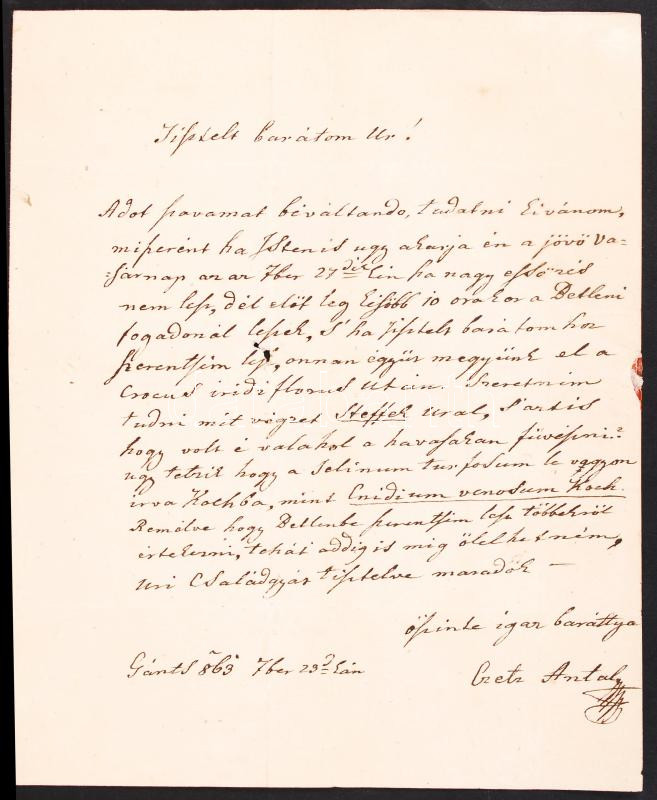 Tisztelt barátom Ur!
Adot szavamat béváltando, tudatni kivánom,
miszerént ha Isten is ugy akarja én a jövö va-
sárnap az az 7ber 27dik kán ha nagy essözés
nem lesz, dél elöt leg késöbb 10 orakor a Detleni
fogadonál leszek, s' ha tisztelt barátom hoz
szerentsém lesz, onnan együt megyünk el a
Crocus iridiflorus után. Szeretném
tudni mit végzet Steffek Ural, s' azt is
hogy volt é valahol a havasakan füvészni?
ugy tetzik hogy a Selinum turfosum le vagyon
irva Kochba, mint Cnidium venosum Koch.
Remélve hogy Detlenbe szerentsém lesz többekröl
értekezni, tehát addig is mig ölelhetném,
Uri Családgyát tisztelve maradok —
öszinte igaz baráttya
Gánts 863 7ber 23d kán
Czetz Antal